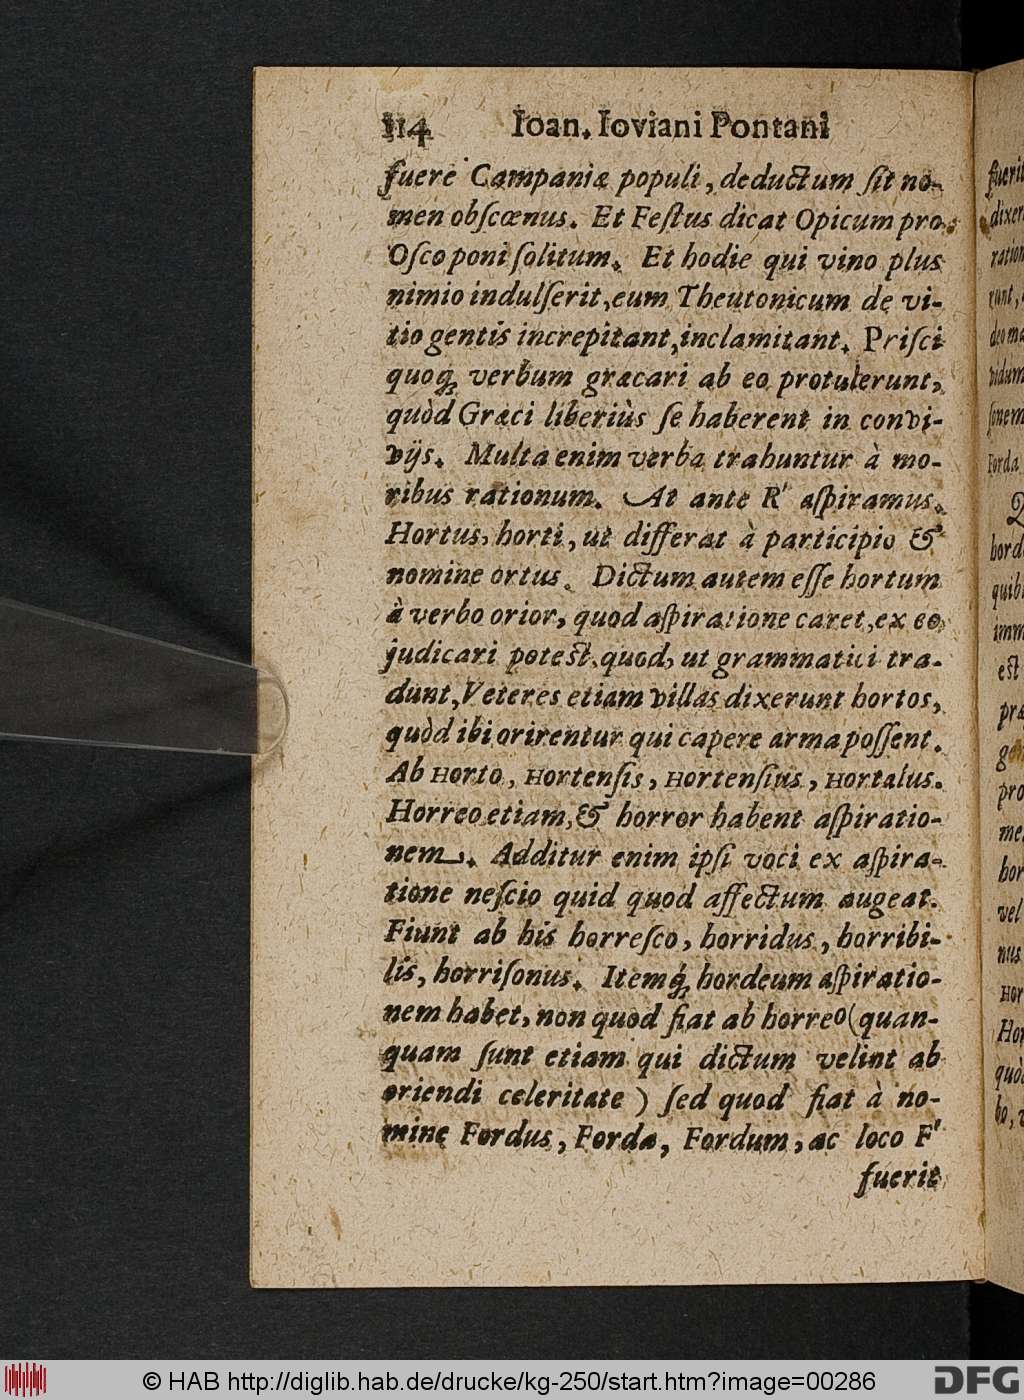 114 Ioan. Ioviani Pontani
fuere Campaniæ populi, deductum ſit no-
men obſcœnus. Et Feſtus dicat Opicum pro
Oſco poni ſolitum. Et hodie qui vino plus
nimio indulſerit, eum Theutonicum de vi-
tio gentis increpitant, inclamitant. Priſci
quoq́; verbum græcari ab eo protulerunt,
quòd Græci liberiùs ſe haberent in convi-
vijs. Multa enim verba trahuntur à mo-
ribus rationum. At ante R' aſpiramus.
Hortus, horti, ut differat à participio &
nomine ortus. Dictum autem eſſe hortum
à verbo orior, quod aſpiratione caret, ex eo
judicari poteſt, quod, ut grammatici tra-
dunt, Veteres etiam villas dixerunt hortos,
quòd ibi orirentur qui capere arma poſſent.
Ab Horto, Hortenſis, Hortenſius, Hortalus.
Horreo etiam, & horror habent aſpiratio-
nem. Additur enim ipſi voci ex aſpira-
tione neſcio quid quod affectum augeat.
Fiunt ab his horreſco, horridus, horribi-
lis, horriſonus. Itemq́; hordeum aſpiratio-
nem habet, non quod fiat ab horreo (quan-
quam ſunt etiam qui dictum velint ab
oriendi celeritate) ſed quod fiat à no-
mine Fordus, Forda, Fordum, ac loco F'
fuerit
© HAB http://diglib.hab.de/drucke/kg-250/start.htm?image=00286
DFG